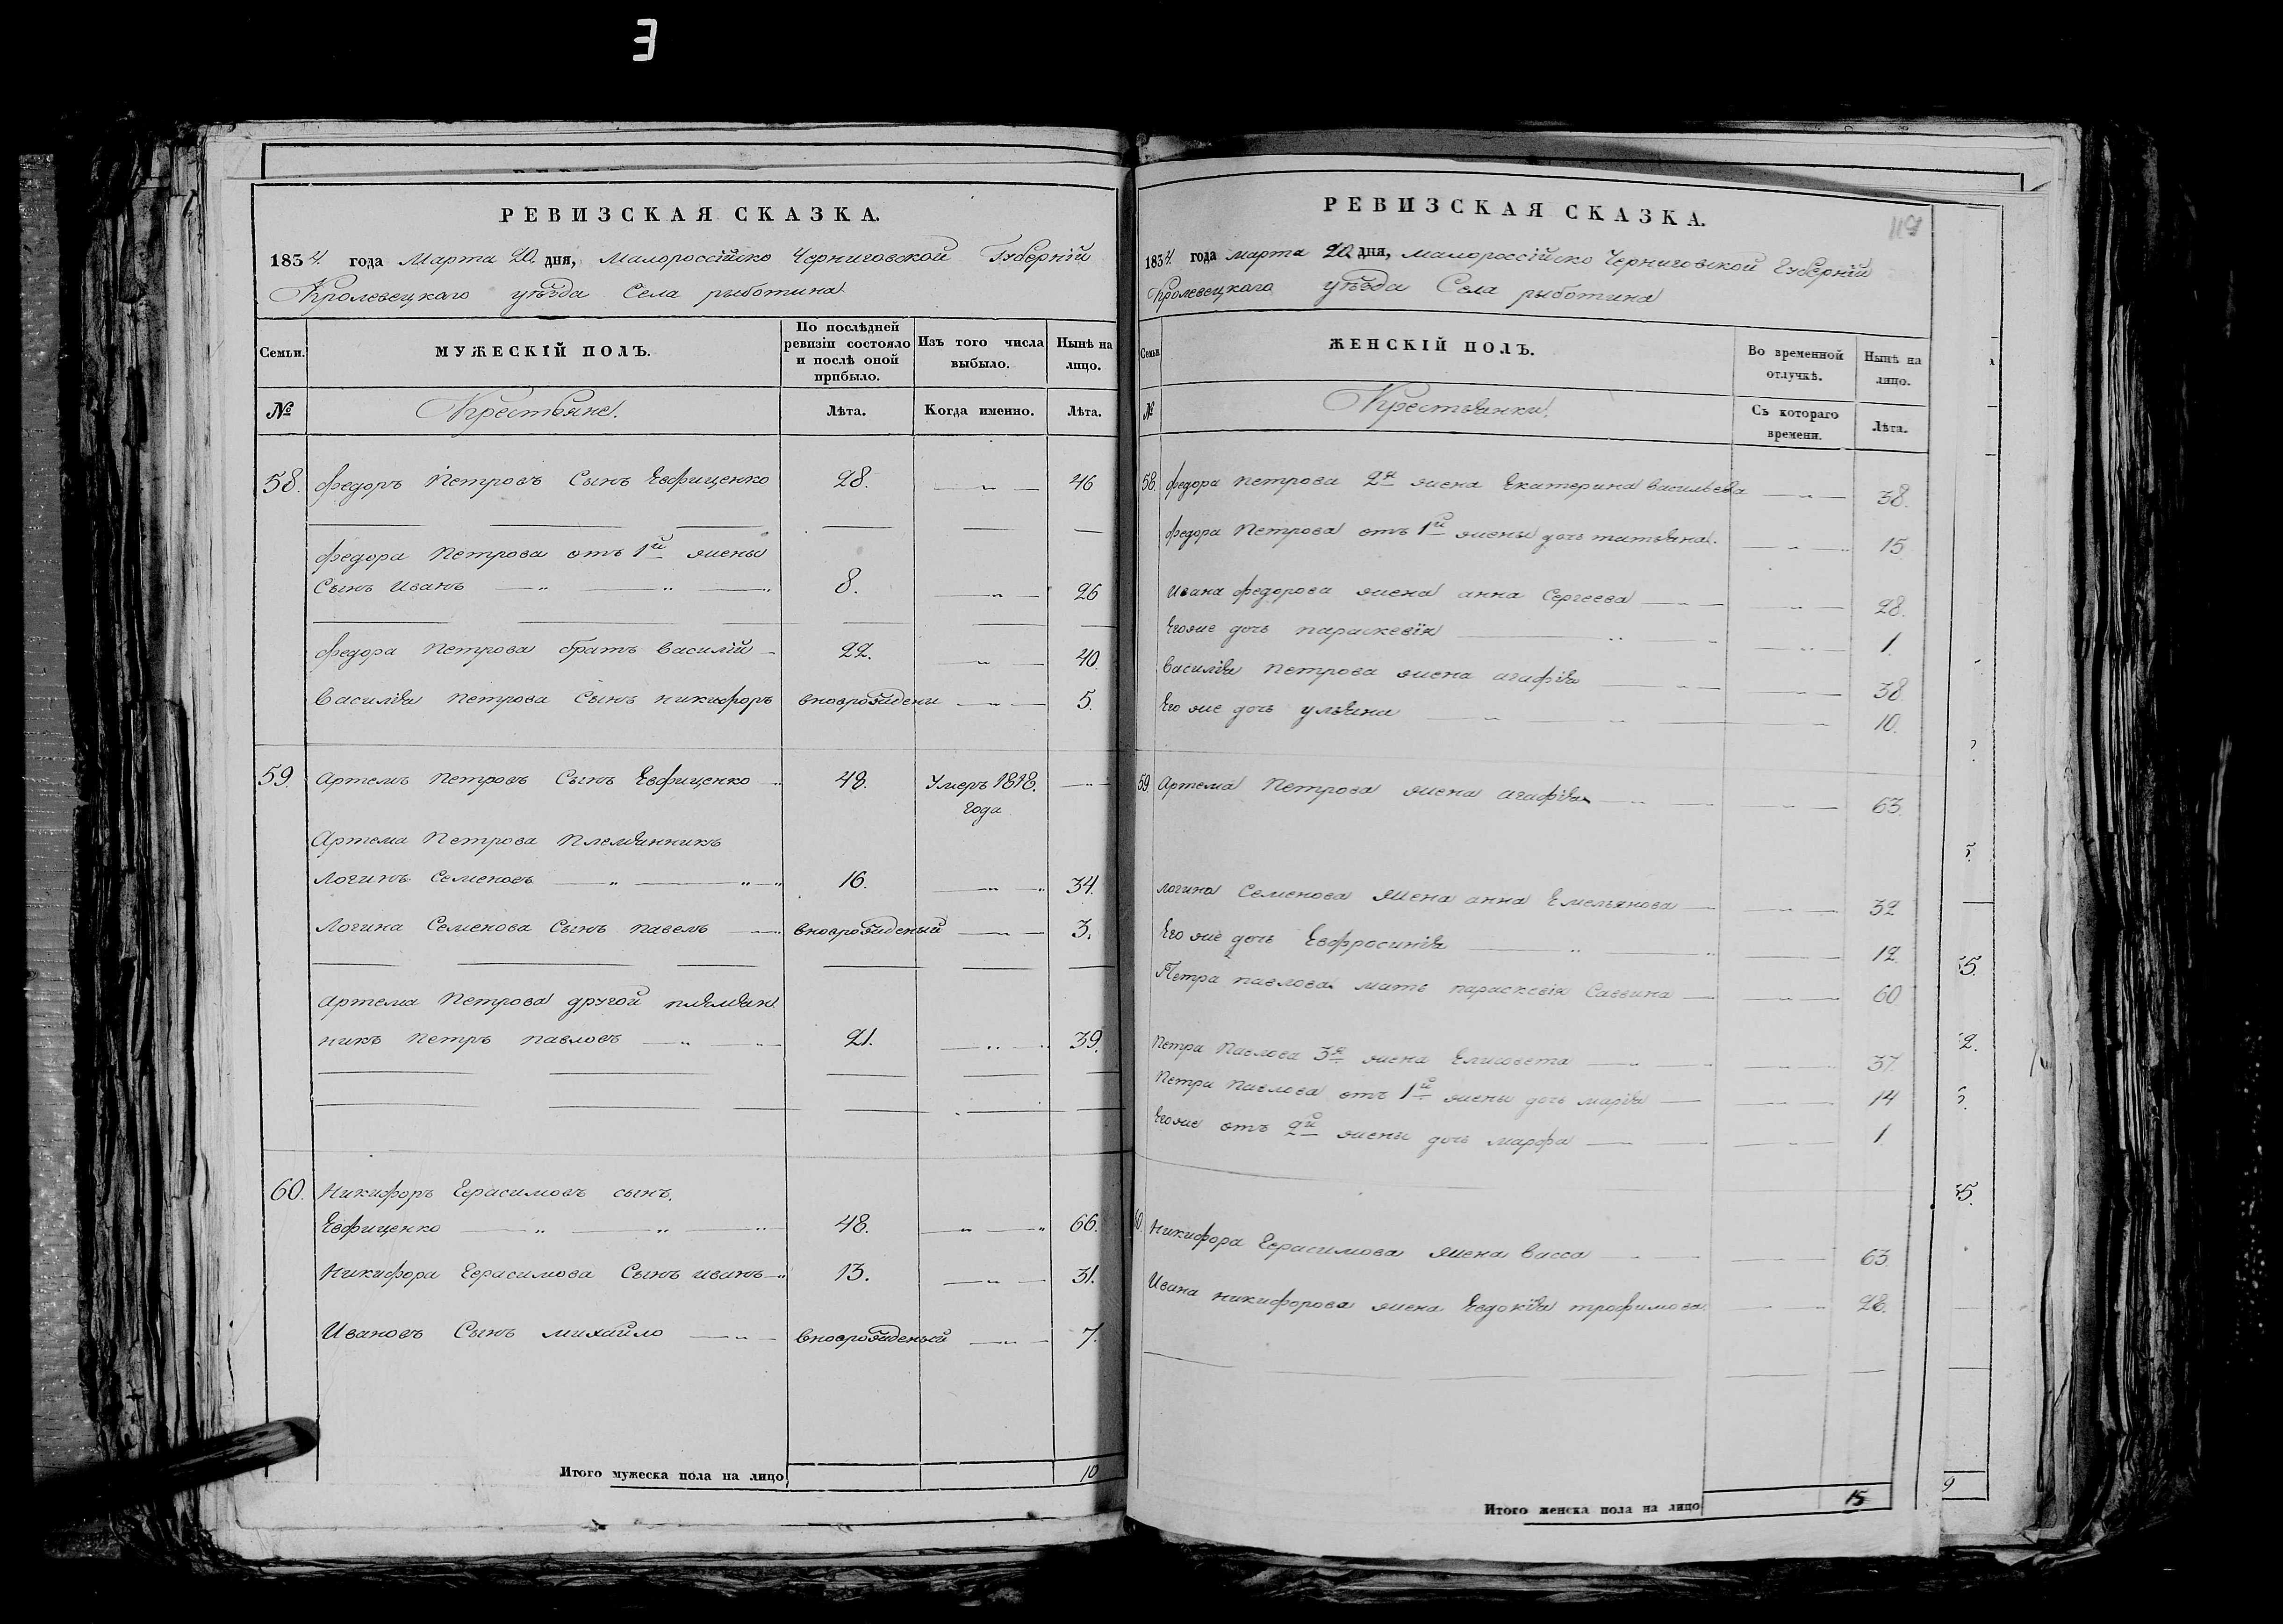 РЕВИЗСКАЯ СКАЗКА.
1834. года Марта 20. дня, Малороссійско Черниговской Губерній
Кролевецкаго уѣзда Села рыботина
Семьи.
МУЖЕСКІЙ ПОЛЪ.
По послѣдней ревизіи состояло и послѣ оной прибыло.
Изъ того числа выбыло.
Нынѣ на лицо.
№
Крестьяне.
Лѣта.
Когда именно.
Лѣта.
58. Федоръ Петровъ Сынъ Евфиценко 28. — „ — 46
федора Петрова отъ 1й жены
Сынъ Иванъ — „ — „ — „ 8. — „ — 26
федора Петрова братъ Василій — 22. — „ — 40.
Василія Петрова Сынъ никифоръ вноврожденн — „ — 5.
59. Артемъ Петровъ Сынъ Евфиценко — „ 48. Умеръ 1818. — „ —
года
Артема Петрова Племянникъ
Логинъ Семеновъ — „ — „ — „ 16. — „ — „ 34.
Логина Семенова Сынъ павелъ — „ вноврожденый — „ — 3.
Артема Петрова другой племян
никъ Петръ павловъ — „ — „ — 21. — „ — „ 39.
60. Никифоръ Герасимовъ сынъ.
Евфиценко — „ — „ — „ 48. — „ — „ 66.
Никифора Герасимова Сынъ иванъ — „ 13. — „ — 31.
Ивановъ Сынъ михайло — „ — вноврожденый — „ — 7.
Итого мужеска пола на лицо 10
РЕВИЗСКАЯ СКАЗКА.
1834. года марта 20. дня, малороссійско Черниговской Губерній
Кролевецкаго уѣзда Села рыботина
Семьи
ЖЕНСКІЙ ПОЛЪ.
Во временной отлучкѣ.
Нынѣ на лицо.
№
Крестьянки.
Съ котораго времени.
Лѣта.
58. федора петрова 2я жена Екатерина васильева — „ — 38.
федора Петрова отъ 1й жены дочь татьяна. — „ — 15
Ивана федорова жена анна Сергеева — „ — — „ — 28.
Егоже дочь параскевія — „ — — „ — 1.
василія петрова жена агафія — „ — — „ — 38
Его же дочь ульяна — „ — „ — 10.
59 Артема Петрова жена агафія — „ — — „ — 63.
логина Семенова жена анна Емельянова — — „ — 32
Его же дочь Евфросинія — „ — „ — „ — 12.
Петра павлова мать параскевія Саввина — — „ — 60
Петра Павлова 3я жена Елисовета — „ — — „ — 37.
Петра павлова отъ 1й жены дочь марія — — „ — 14
Егоже отъ 2й жены дочь марфа — „ — — „ — 1.
60. Никифора Герасимова жена васса — „ — — „ — 63.
Ивана никифорова жена Евдокія трофимова. — „ — 28.
Итого женска пола на лицо 15